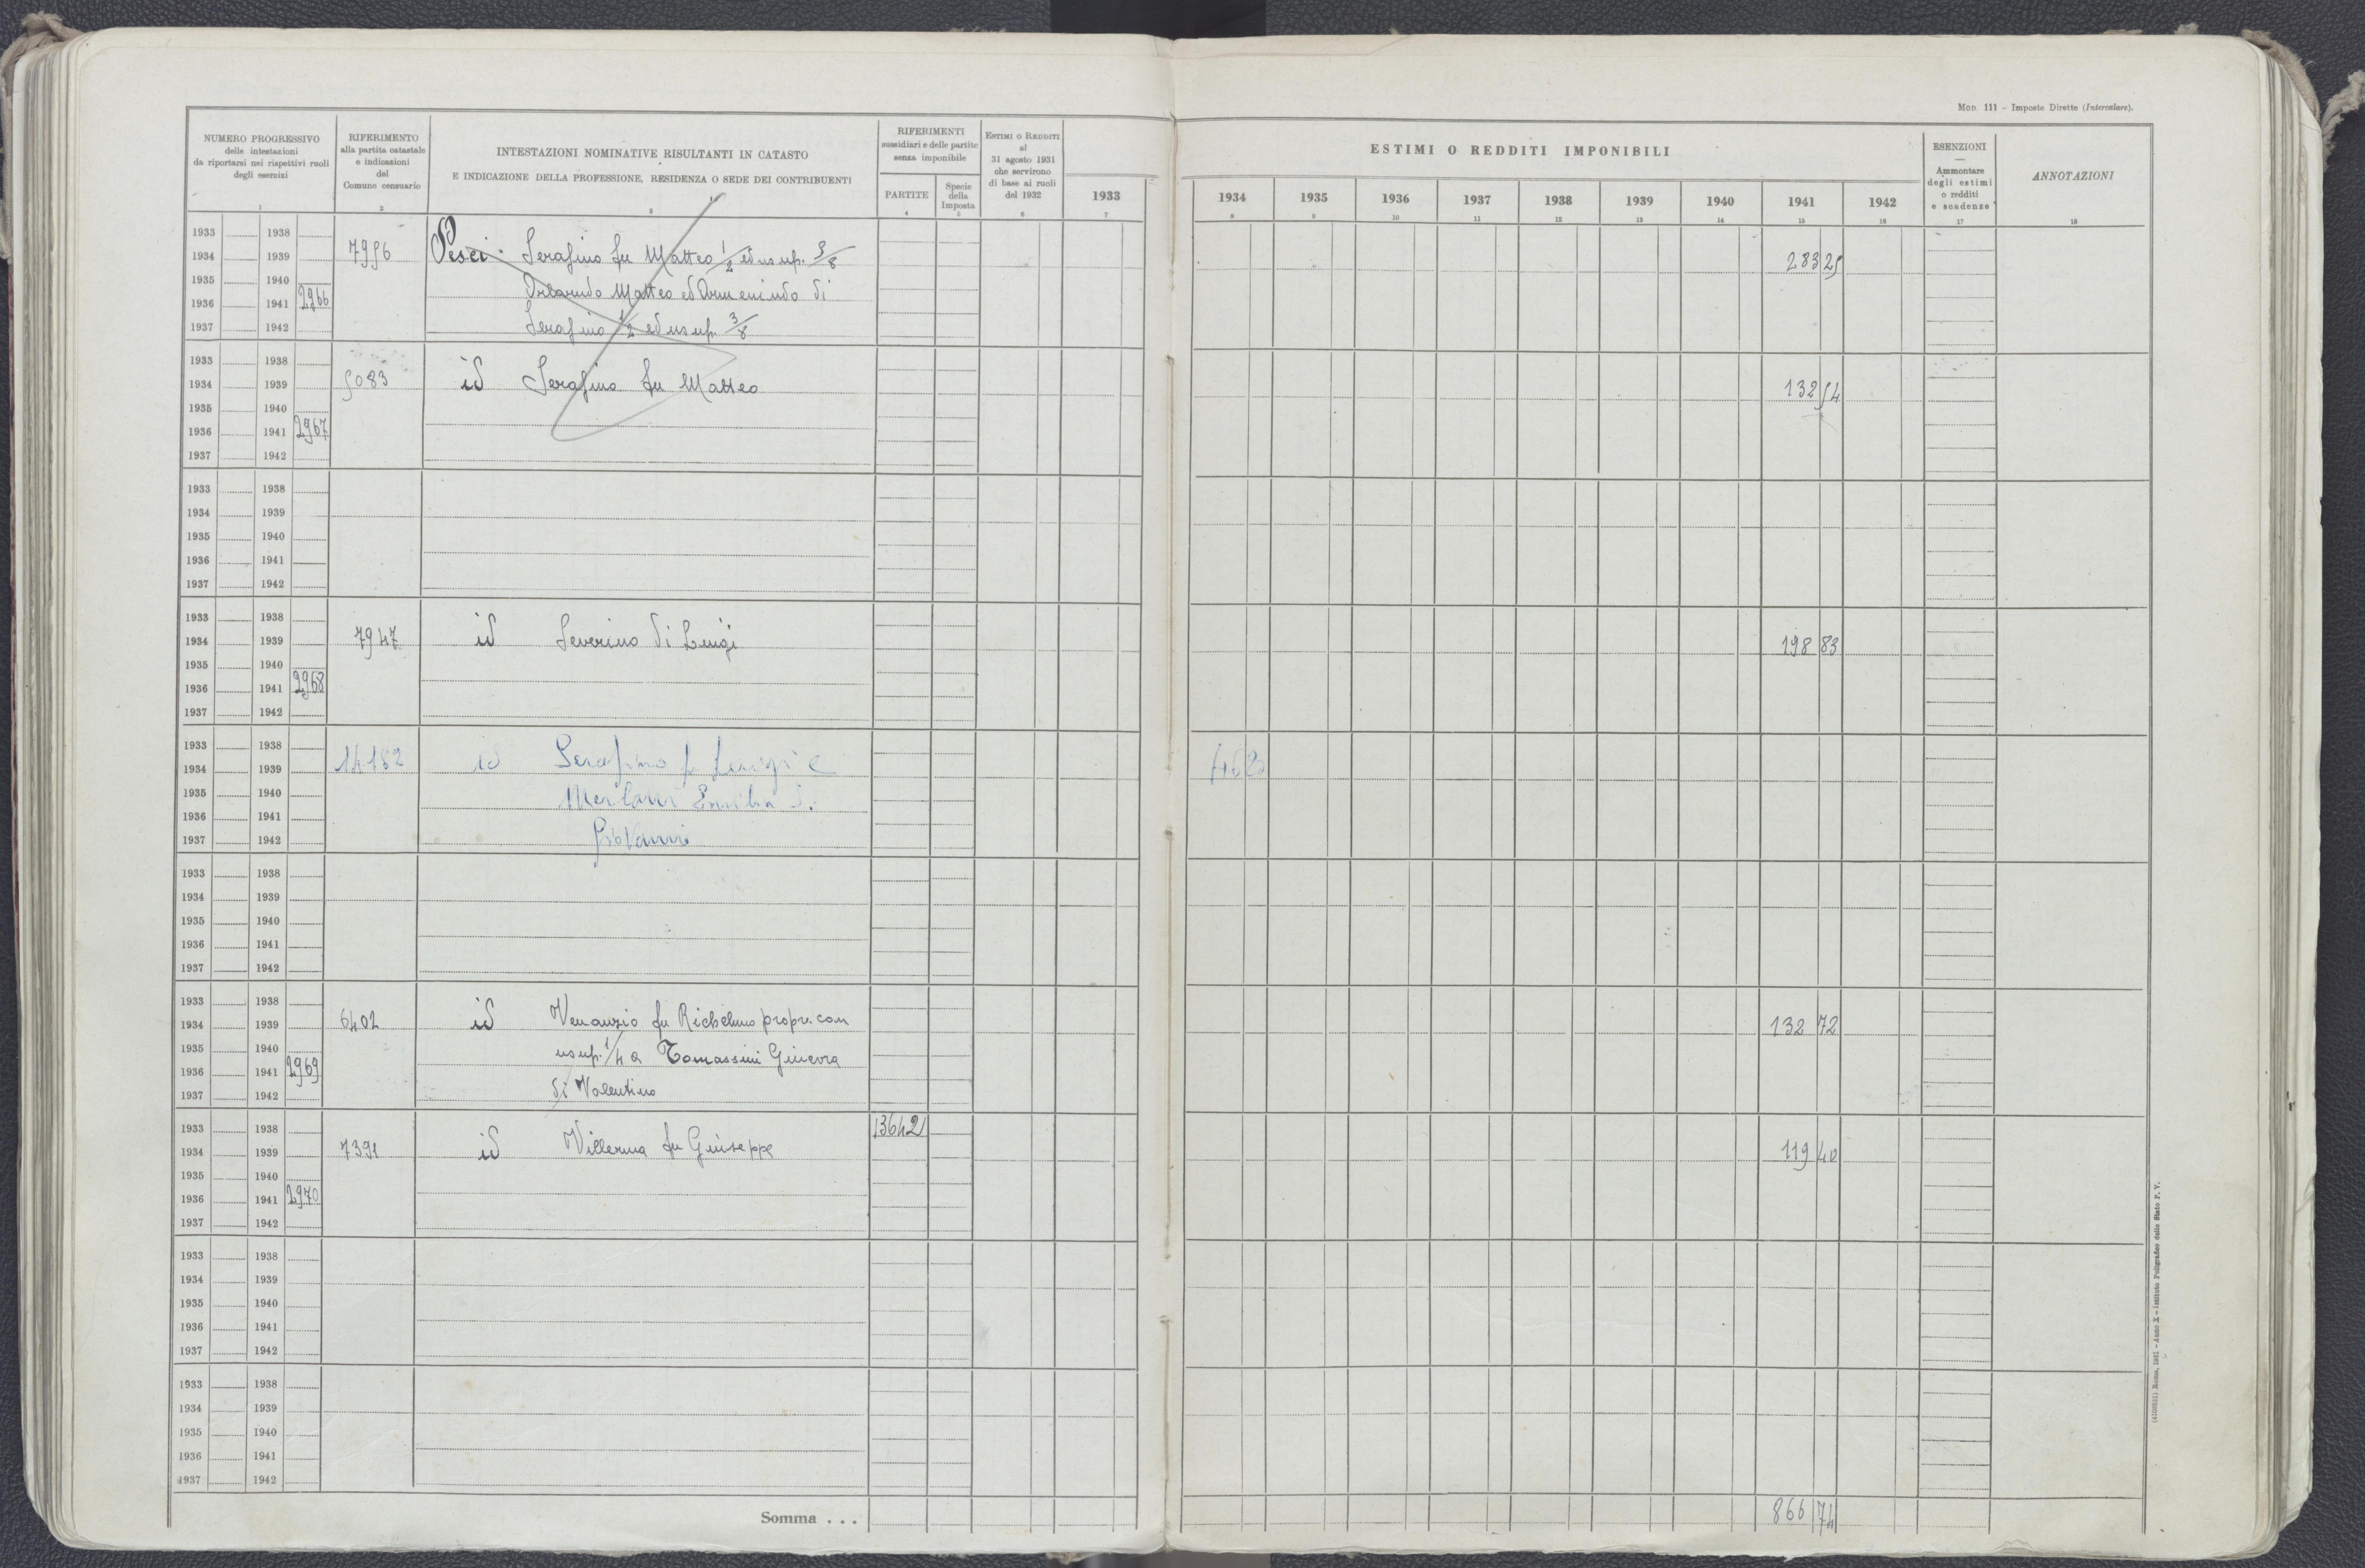 Mod. 111 - Imposte Dirette (Intercalare).
NUMERO PROGRESSIVO
delle intestazioni
da riportarsi nei rispettivi ruoli
degli esercizi
1
RIFERIMENTO
alla partita catastale
e indicazioni
del
Comune censuario
2
INTESTAZIONI NOMINATIVE RISULTANTI IN CATASTO
E INDICAZIONE DELLA PROFESSIONE, RESIDENZA O SEDE DEI CONTRIBUENTI
3
RIFERIMENTI
sussidiari e delle partite
senza imponibile
PARTITE
4
Specie
della
Imposta
5
ESTIMI O REDDITI
al
31 agosto 1931
che servirono
di base ai ruoli
del 1932
6
1933
7
ESTIMI O REDDITI IMPONIBILI
1934 1935 1936 1937 1938 1939 1940 1941 1942
8 9 10 11 12 13 14 15 16
ESENZIONI
—
Ammontare
degli estimi
o redditi
e scadenze
17
ANNOTAZIONI
18
1933 1938
1934 1939 7956 Pesci Serafino fu Matteo 1/2 ed usup. 3/8 283 25
1935 1940 Orlando Matteo ed Armenindo di
1936 1941 2966
1937 1942 Serafino 1/2 ed usup. 3/8
1933 1938
1934 1939 5083 id Serafino fu Matteo 132 54
1935 1940
1936 1941 2967
1937 1942
1933 1938
1934 1939
1935 1940
1936 1941
1937 1942
1933 1938
1934 1939 7947 id Severino di Luigi 198 83
1935 1940
1936 1941 2968
1937 1942
1933 1938
1934 1939 14182 id Serafino f Luigi e 468
1935 1940 Emilia d.
1936 1941
1937 1942 Giovanni
1933 1938
1934 1939
1935 1940
1936 1941
1937 1942
1933 1938
1934 1939 6402 id Venanzio fu Richelmo propr. con 132 72
1935 1940 usup. 1/4 a Tomassini Ginevra
1936 1941 2969
1937 1942 di Valentino
1933 1938 13642
1934 1939 7391 id Villerma fu Giuseppe 119 40
1935 1940
1936 1941 2970
1937 1942
1933 1938
1934 1939
1935 1940
1936 1941
1937 1942
1933 1938
1934 1939
1935 1940
1936 1941
1937 1942
Somma . . . 866 74
Roma, 1931 - Anno X - Istituto Poligrafico dello Stato P. V.